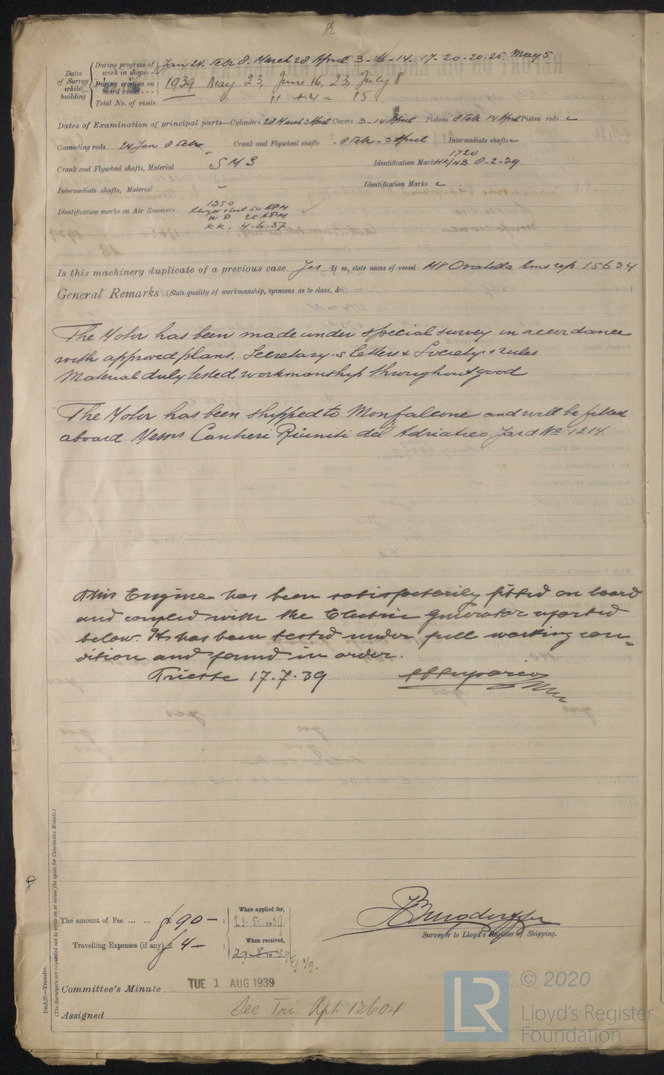 Dates of Survey while building
During progress of work in shops - - Jan 24. Febr 8. March 28 April 3-6-14-17-20-20-25 May 5
During erection on board vessel - - - 1939 May 23, June 16, 23, July 8
Total No. of visits 11 + 4 = 15
Dates of Examination of principal parts—Cylinders 28 March 3 April Covers 3-14 April Pistons 8 Febr 14 April Piston rods
Connecting rods 24 Jan 8 Febr Crank and Flywheel shafts 8 Febr - 3 April Intermediate shafts
Crank and Flywheel shafts, Material S M S Identification Mark 1720 8-2-39
Intermediate shafts, Material - Identification Marks
Identification marks on Air Receivers 1350
50 ATM
W P 25 ATM
KK. 4-6-37
Is this machinery duplicate of a previous case Yes If so, state name of vessel Ovatella rep 15634
General Remarks (State quality of workmanship, opinions as to class, &c.
The Motor has been made under special survey in accordance
with approved plans, Secretary's letters & Society's rules
Material duly tested, workmanship throughout good
The Motor has been shipped to Monfalcone and will be fitted
aboard Messrs Cantieri Riuniti del Adriatico Yard No 1214
This Engine has been satisfactorily fitted on board
and coupled with the Electric generator reported
below. It has been tested under full working con-
dition and found in order.
Trieste 17.7.39
The amount of Fee ... ... £ 90 -
When applied for, 23.5.1939
Travelling Expenses (if any) £ 4 -
When received,
Surveyor to Lloyd's Register of Shipping.
Committee's Minute TUE 1 AUG 1939
Assigned See Tri Rpt 12604
(The Surveyors are requested not to write on or below the space for Committee Minute.)
© 2020
LR
Lloyd's Register
Foundation